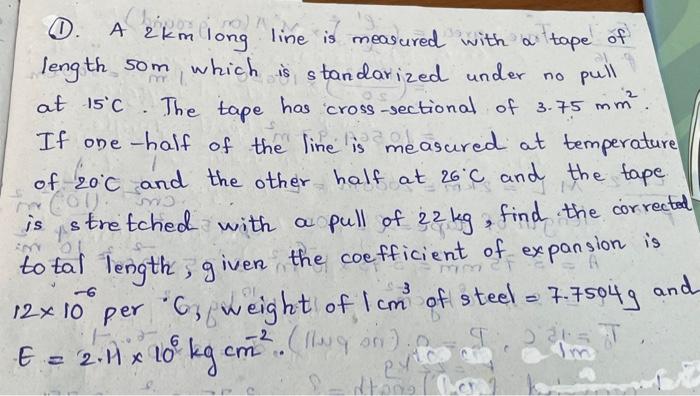 ①. A 2km long line is measured with a tape of
length 50m which is standarized under no pull
at 15°C. The tape has cross-sectional of 3.75 mm².
If one-half of the line is measured at temperature
of 20°C and the other half at 26°C and the tape
is stretched with a pull of 22kg, find the corrected
total length, given the coefficient of expansion is
12×10⁻⁶ per °C, weight of 1cm³ of steel = 7.7504g and
E = 2.11×10⁶ kg cm⁻².